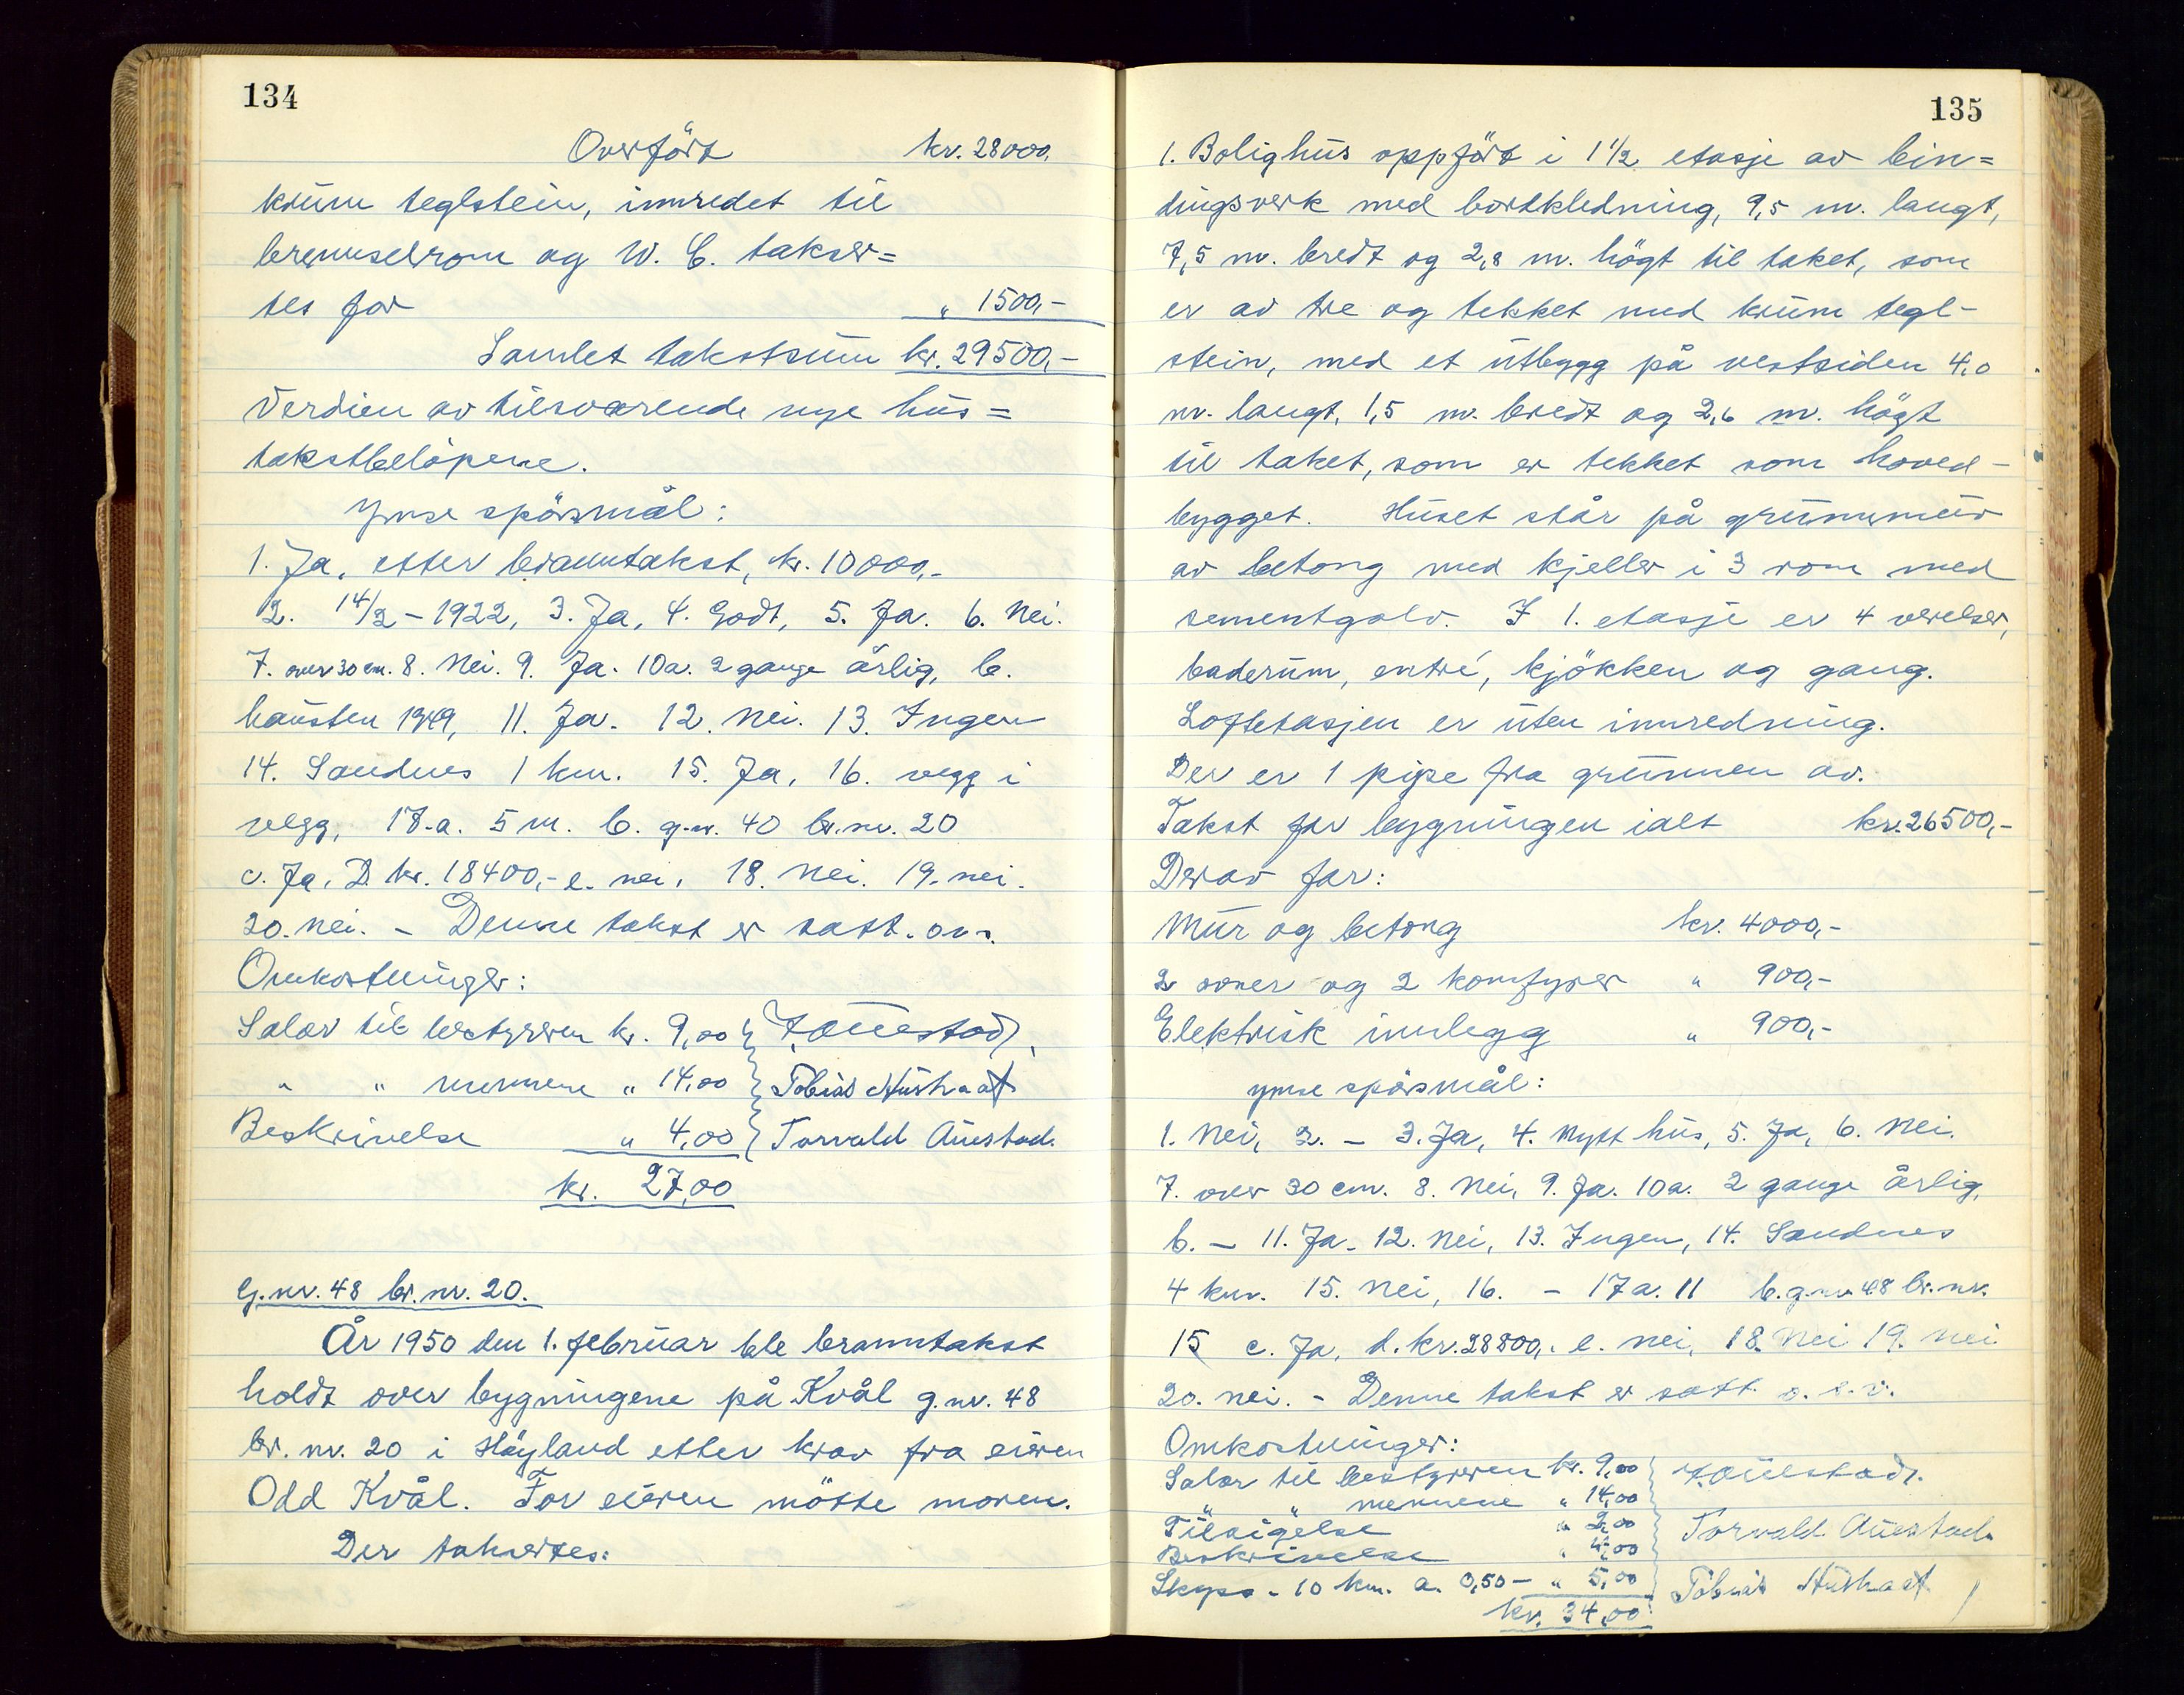 134
Overfört kr. 28000,
krum teglstein, innredet til
brenselrom og W. C. takser=
tes for " 1500,-
Samlet takstsum kr. 29500,-
Verdien av tilsvarende nye hus=
takstbelöpene.
Ymse spörsmål:
1. Ja, etter branntakst, kr. 10000,-
2. 14/2 - 1922, 3. Ja, 4. Godt, 5. Ja. 6. Nei.
7. over 30 cm. 8. Nei. 9. Ja. 10a. 2 gange årlig, b.
hausten 1949, 11. Ja. 12. Nei. 13. Ingen
14. Sandnes 1 km. 15. Ja, 16. vegg i
vegg, 17.a. 5 m. b. g.nr. 40 br.nr. 20
c. Ja, D. kr. 18400,- e. nei, 18. Nei. 19. nei.
20. Nei. - Denne takst er satt. o.s.
Omkostninger:
Salar til bestyreren kr. 9,00 } Z. Auestad.
" " mennene " 14,00 } Tobias Hushaat
Beskrivelse " 4,00 } Torvald Auestad.
kr. 27,00
G.nr. 48 br.nr. 20.
År 1950 den 1. februar ble branntakst
holdt over bygningene på Kvål g.nr. 48
br. nr. 20 i Höyland etter krav fra eieren
Odd Kvål. For eieren mötte moren.
Der takertes:
135
1. Bolighus oppfört i 1 1/2 etasje av bin=
dingsverk med bordkledning, 9,5 m. langt,
7,5 m. bredt og 2,8 m. högt til taket, som
er av tre og tekket med krum tegl-
stein, med et utbygg på vestsiden 4,0
m. langt, 1,5 m. bredt og 2,6 m. högt
til taket, som er tekket som hoved-
bygget. Huset står på grunnmur
av betong med kjeller i 3 rom med
sementgolv. I 1. etasje er 4 verelser,
baderum, entré, kjökken og gang.
Loftetasjen er uten innredning.
Der er 1 pipe fra grunnen av.
Takst for bygningen ialt kr. 26500,-
Derav for:
Mur og betong kr. 4000,-
2 ovner og 2 komfyrer " 900,-
Elektrisk innlegg " 900,-
ymse spörsmål:
1. Nei, 2. - 3. Ja, 4. Nytt hus, 5. Ja, 6. Nei.
7. over 30 cm. 8. Nei, 9. Ja. 10a. 2 gange årlig,
b. - 11. Ja. 12. Nei, 13. Ingen, 14. Sandnes
4 km. 15. Nei, 16. - 17a. 11 b. g.nr. 48 br. nr.
15 c. Ja, d. kr. 28800,- e. nei, 18. Nei 19. nei
20. nei. - Denne takst er satt o. s. v.
Omkostninger:
Salar til bestyreren kr. 9,00 } Z. Auestad.
" " mennene " 14,00
Tilsigelse " 2,00 } Torvald Auestad.
Beskrivelse " 4,00
Skyss - 10 km. a. 0,50 - " 5,00 } Tobias Hushaat
kr. 34,00